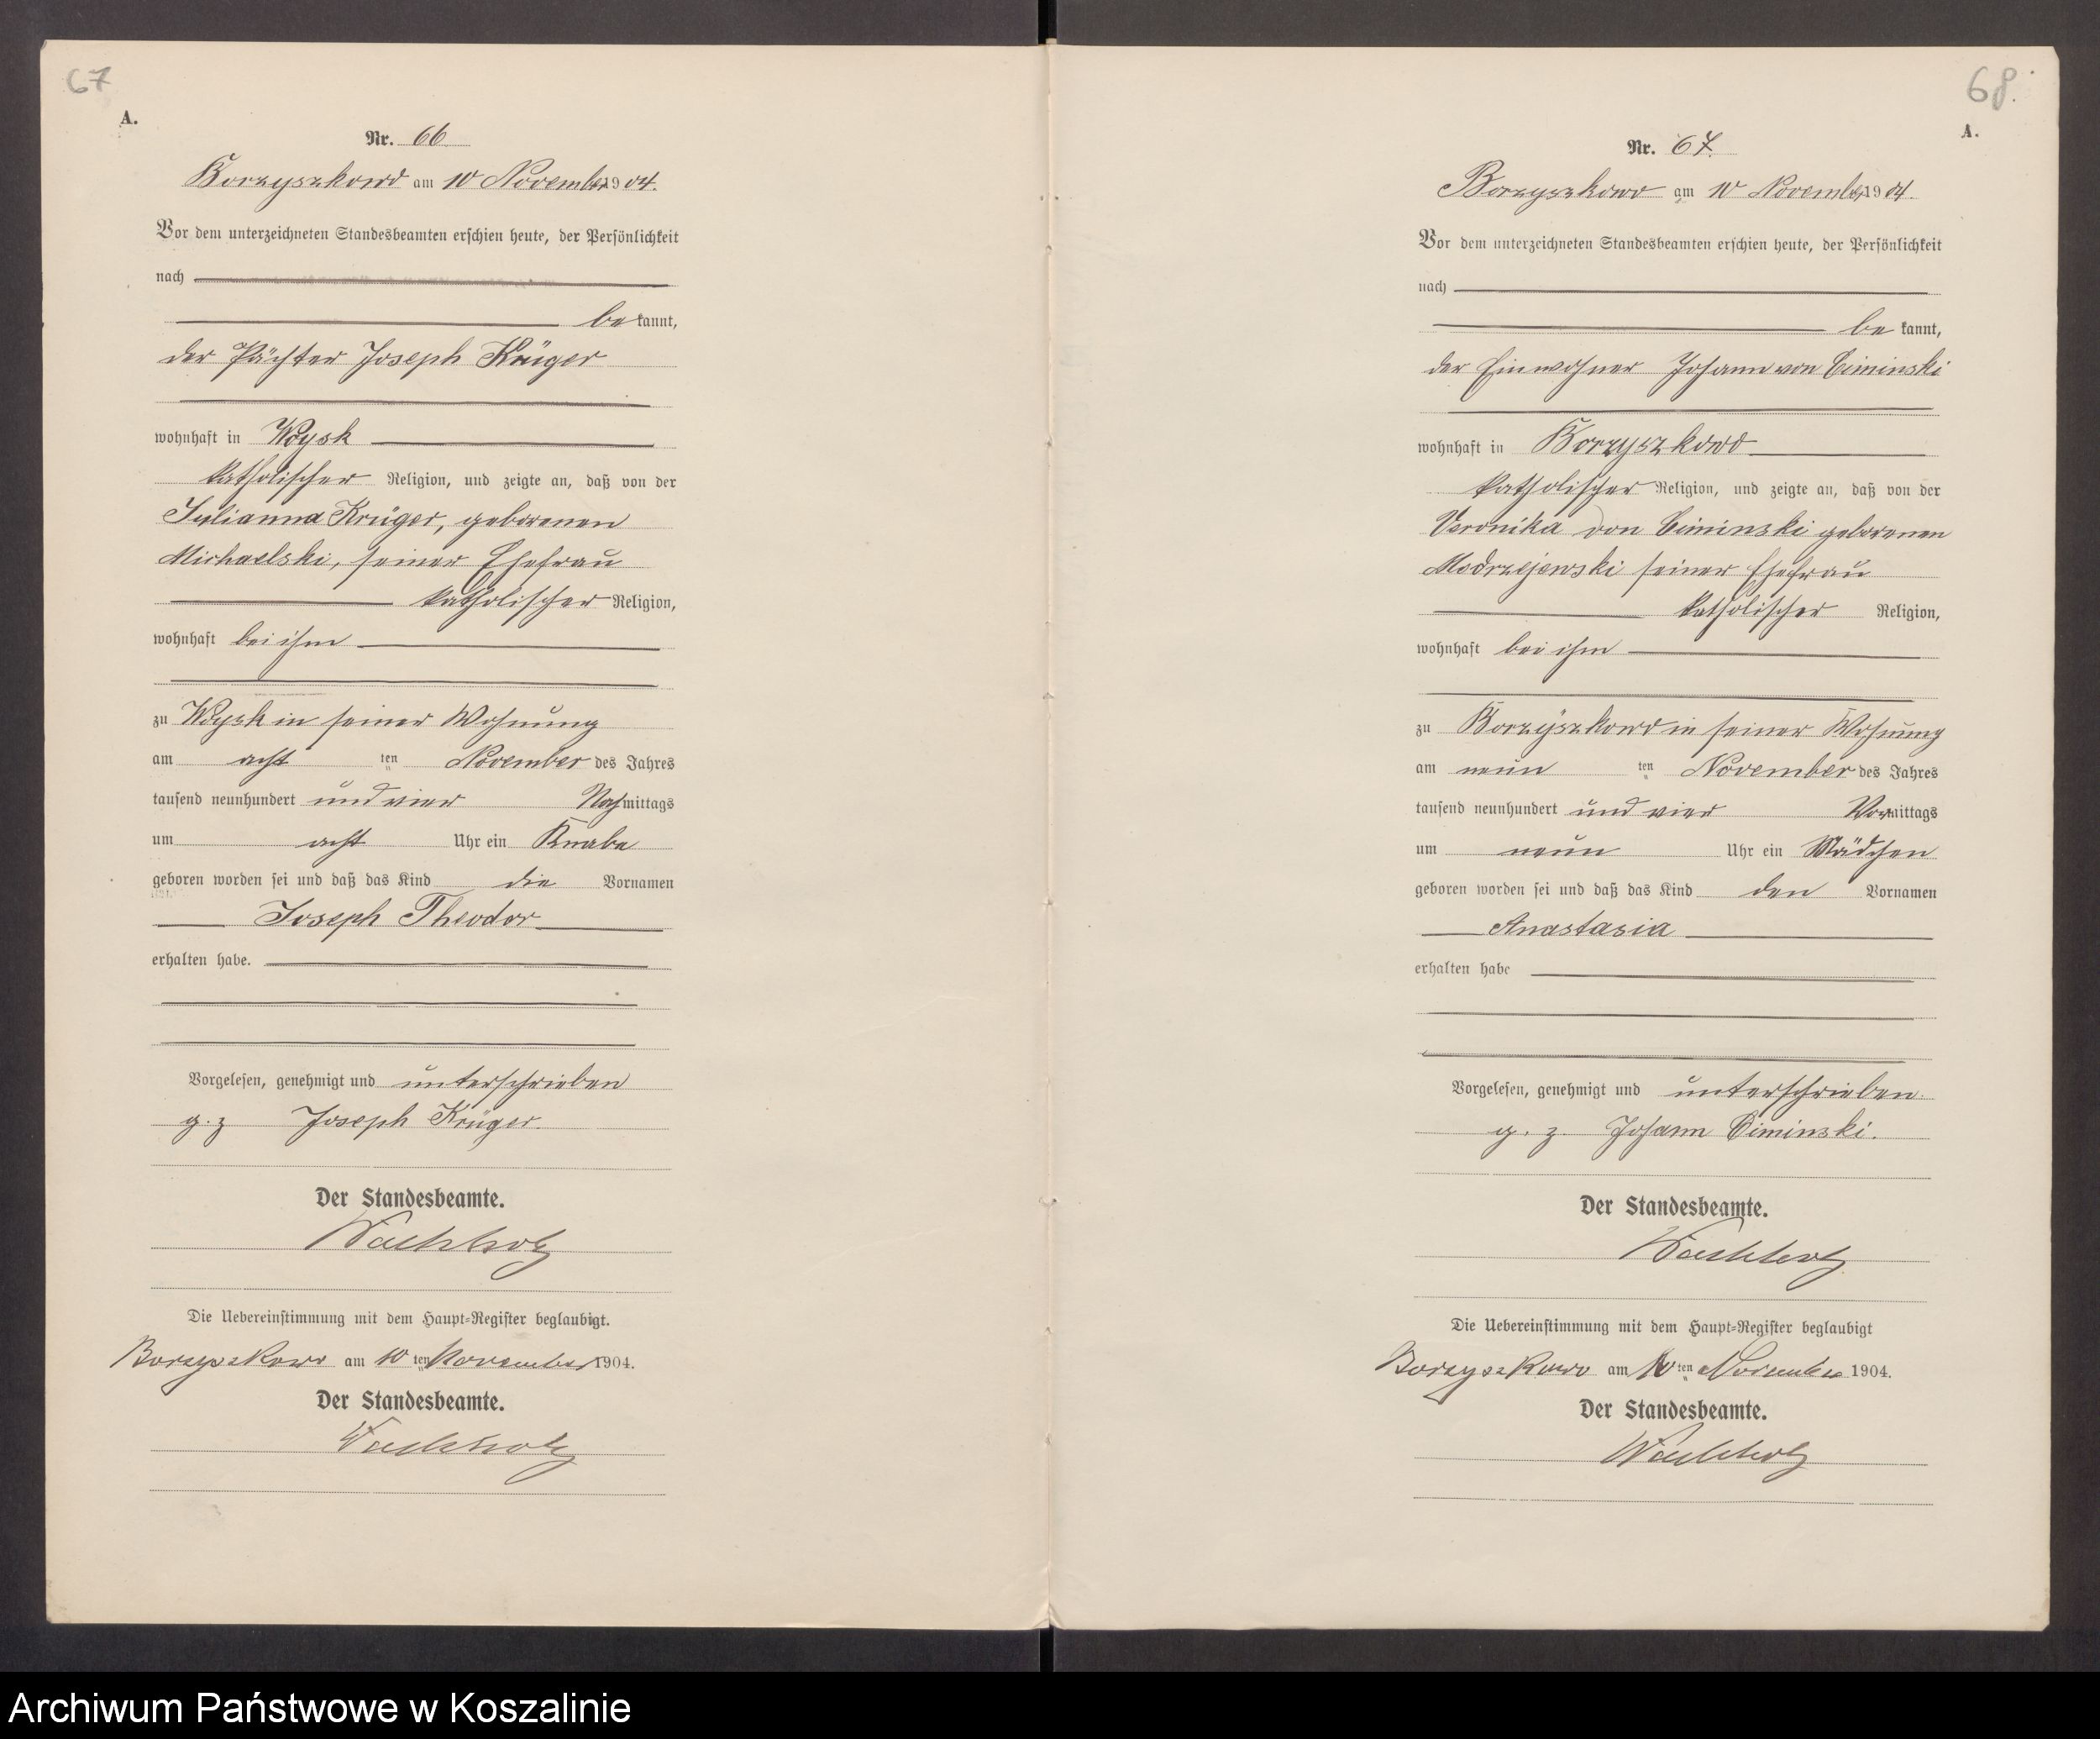 67
A.
Nr. 66
Borzyszkowo am 10 November 1904.
Vor dem unterzeichneten Standesbeamten erschien heute, der Persönlichkeit
nach
be kannt,
der Pächter Joseph Krüger
wohnhaft in Woysk
katholischer Religion, und zeigte an, daß von der
Julianna Krüger, geborenen
Michaelski, seiner Ehefrau
katholischer Religion,
wohnhaft bei ihm
zu Woysk in seiner Wohnung
am acht ten November des Jahres
tausend neunhundert und vier Nachmittags
um acht Uhr ein Knabe
geboren worden sei und daß das Kind die Vornamen
Joseph Theodor
erhalten habe.
Vorgelesen, genehmigt und unterschrieben
g. z Joseph Krüger.
Der Standesbeamte.
Wachholz
Die Uebereinstimmung mit dem Haupt-Register beglaubigt.
Borzyszkowo am 10 ten November 1904.
Der Standesbeamte.
Wachholz
68.
A.
Nr. 67.
Borzyszkowo am 10 November 1904.
Vor dem unterzeichneten Standesbeamten erschien heute, der Persönlichkeit
nach
be kannt,
der Einwohner Johann von Ciminski
wohnhaft in Borzyszkowo
katholischer Religion, und zeigte an, daß von der
Veronika von Ciminski geborenen
Modrzejewski seiner Ehefrau
katholischer Religion,
wohnhaft bei ihm
zu Borzyszkowo in seiner Wohnung
am neun ten November des Jahres
tausend neunhundert und vier Vormittags
um neun Uhr ein Mädchen
geboren worden sei und daß das Kind den Vornamen
Anastasia
erhalten habe
Vorgelesen, genehmigt und unterschrieben.
g. z. Johann Ciminski.
Der Standesbeamte.
Wachholz
Die Uebereinstimmung mit dem Haupt-Register beglaubigt
Borzyszkowo am 10 ten November 1904.
Der Standesbeamte.
Wachholz
Archiwum Państwowe w Koszalinie